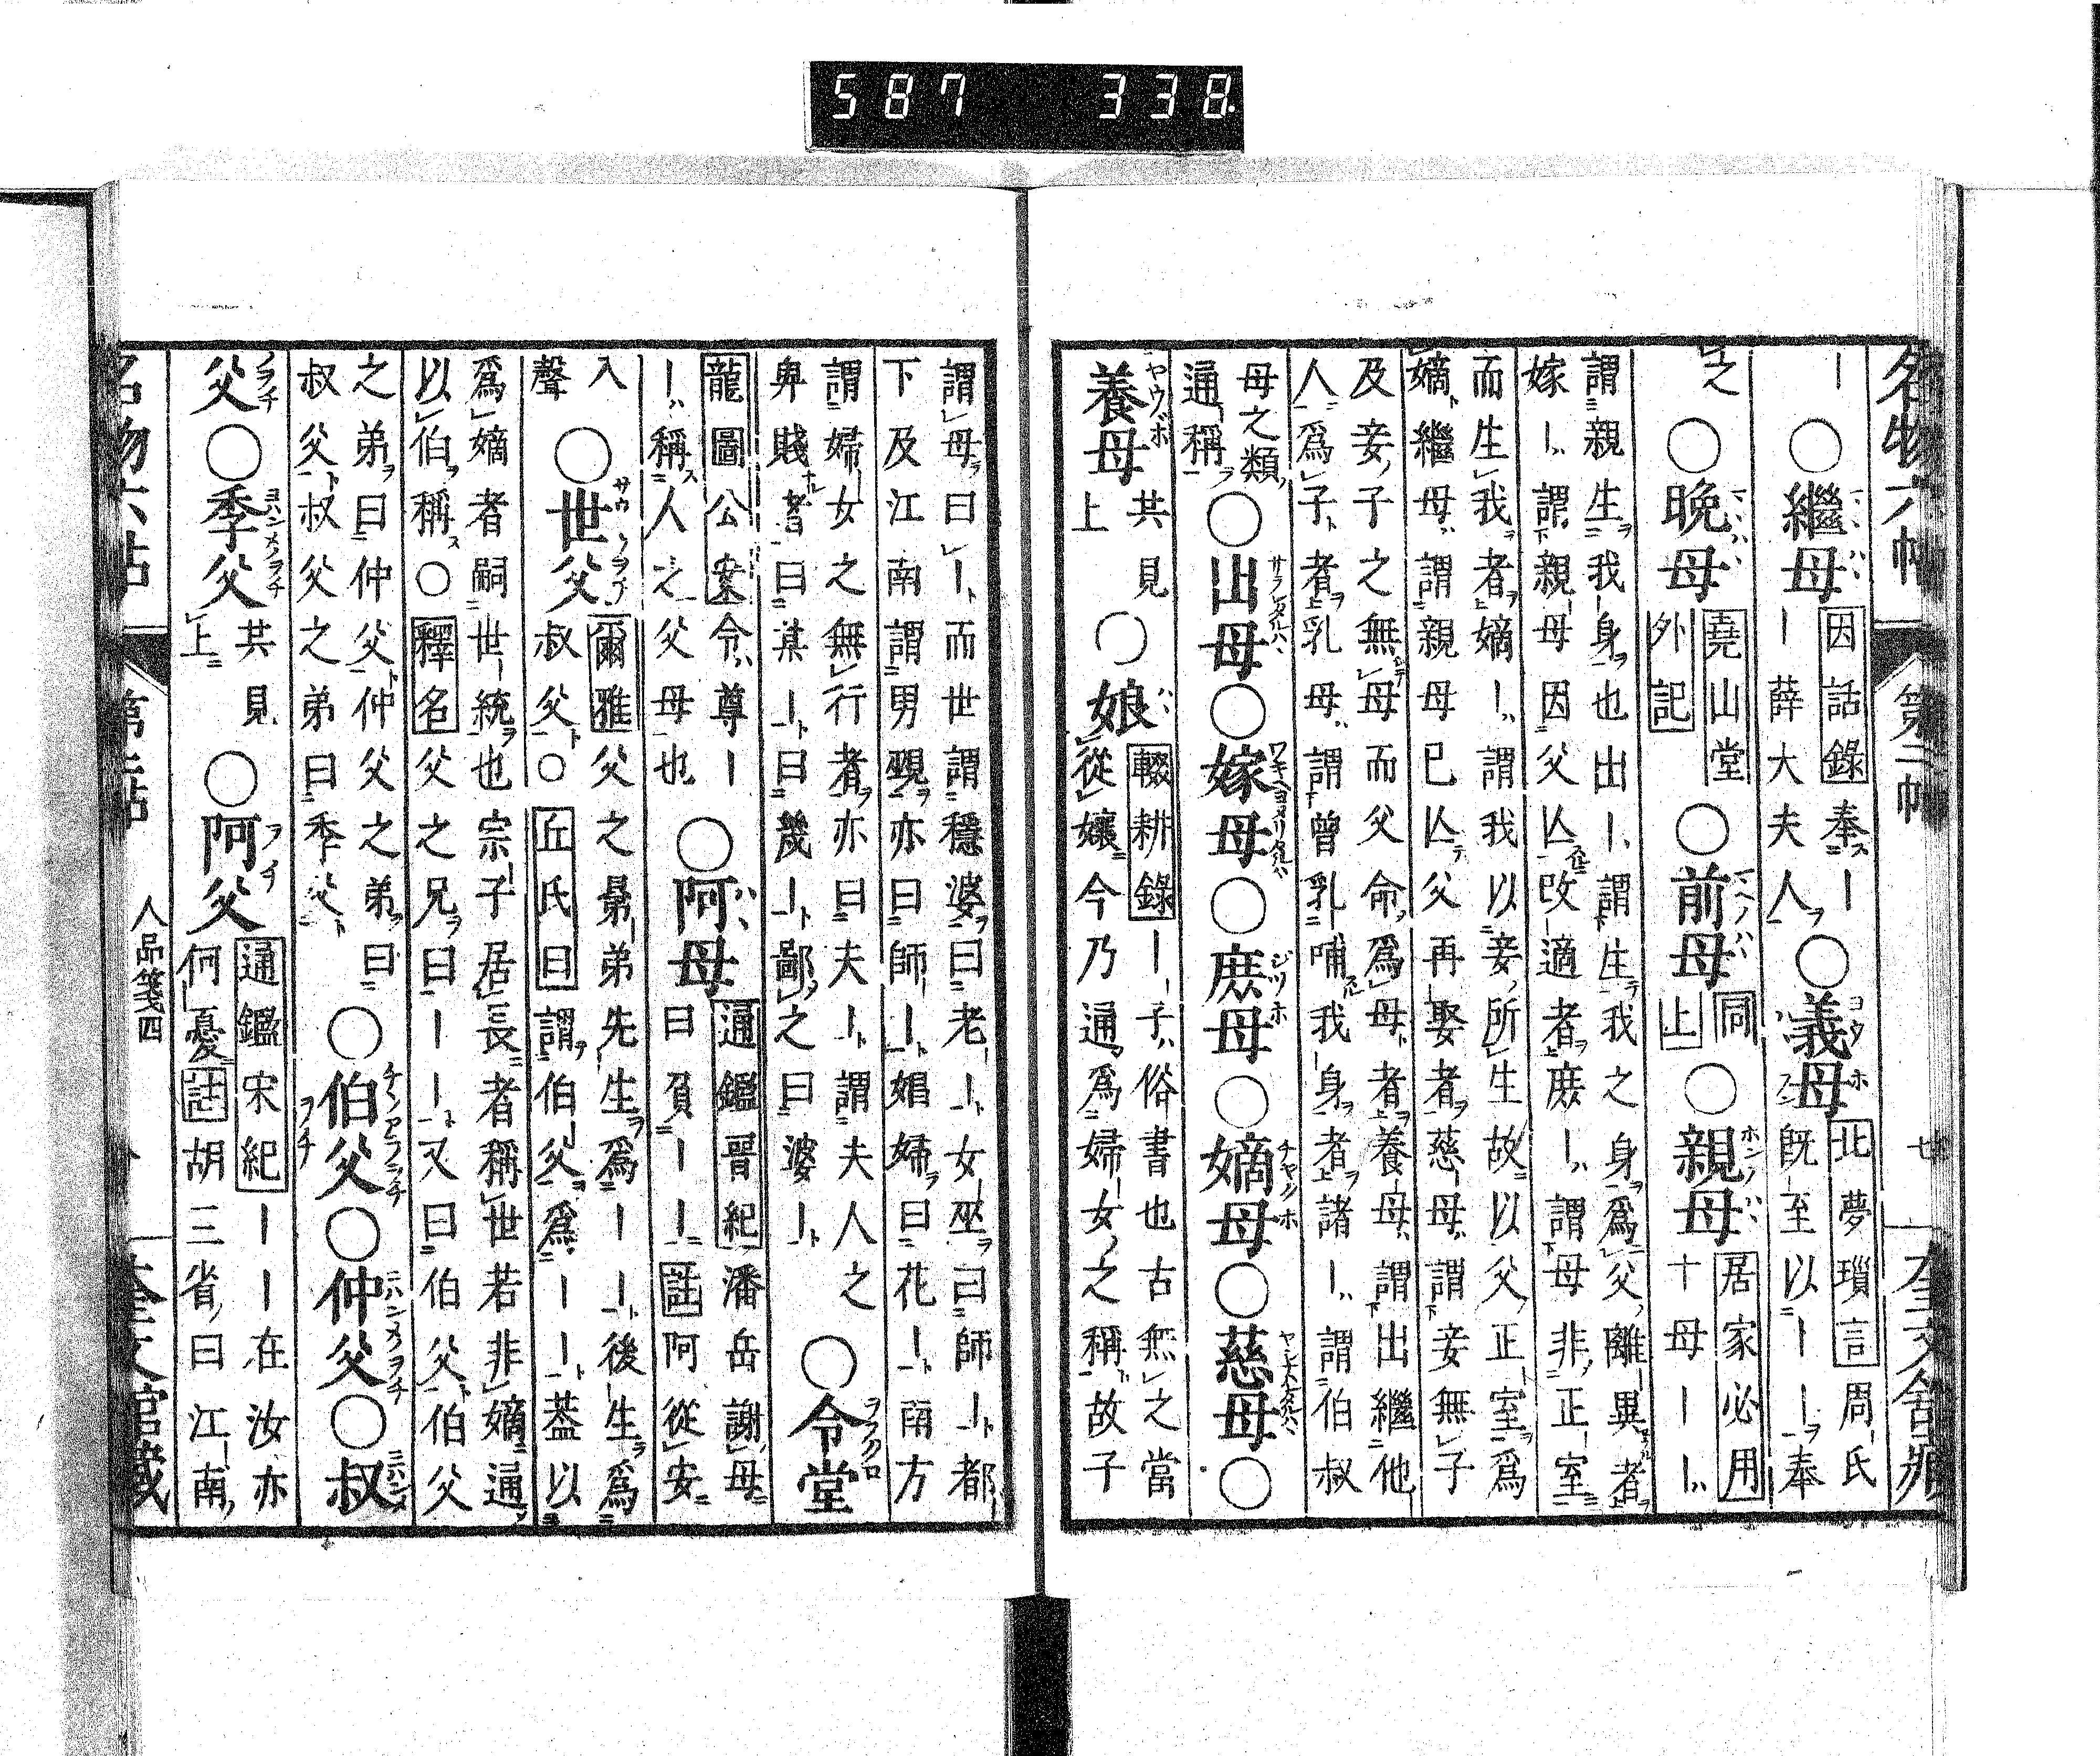 名物六帖 第二帖 廿 奎文舘藏
〡○繼母 因話錄奉〡
〡薛大夫人○義母 北夢瑣言周氏
既至以〡〡奉
之○晩母 堯山堂
外記○前母 同
上○親母 居家必用
十母〡〡
謂親生我身也出〡謂生我之身爲父離異者
嫁〡謂親母因父亾改適者庶〡謂母非正室
而生我者嫡〡謂我以妾所生故以父正室爲
嫡繼母謂親母已亾父再娶者慈母謂妾無子
及妾子之無母而父命爲母者養母謂出繼他
人爲子者乳母謂曾乳哺我身者諸〡謂伯叔
母之類
通稱○出母○嫁母○庶母○嫡母○慈母○
養母 共見
上○娘 輟耕錄〡子俗書也古無之當
從孃今乃通爲婦女之稱故子
謂母曰〡而世謂穩婆曰老〡女巫曰師〡都
下及江南謂男覡亦曰師〡娼婦曰花〡南方
謂婦女之無行者亦曰夫〡謂夫人之
卑賤者曰某〡曰幾〡鄙之曰婆〡○令堂
龍圖公案令尊〡
〡稱人之父母也○阿母 通鑑晋紀潘岳謝母
曰負〡〡註阿從安
入
聲○世父 爾雅父之晜弟先生爲〡〡後生爲
叔父○丘氏曰謂伯父爲〡〡葢以
爲嫡者嗣世統也宗子居長者稱世若非嫡通
以伯稱○釋名父之兄曰〡〡又曰伯父伯父
之弟曰仲父仲父之弟曰
叔父叔父之弟曰季父○伯父○仲父○叔
父○季父 共見
上○阿父 通鑑宋紀〡〡在汝亦
何憂註胡三省曰江南
名物六帖 第二帖 人品箋四 奎文舘藏
587 338